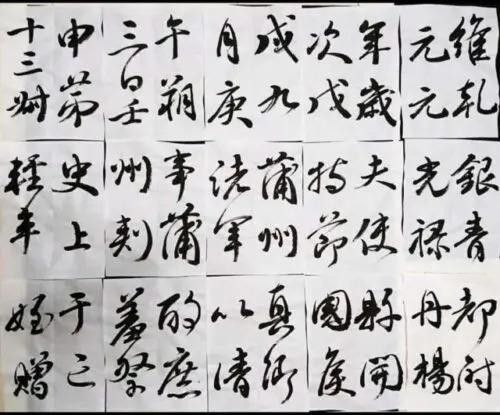 維乾
元元
年歲
次戊
戌九
月庚
午朔
三日壬
申苐
十三叔
銀青
光祿
夫使
持節
蒲州
諸軍
事蒲
州刺
史上
輕車
都尉
丹楊
縣開
國侯
真卿
以清
酌庶
羞祭
于亡
姪贈